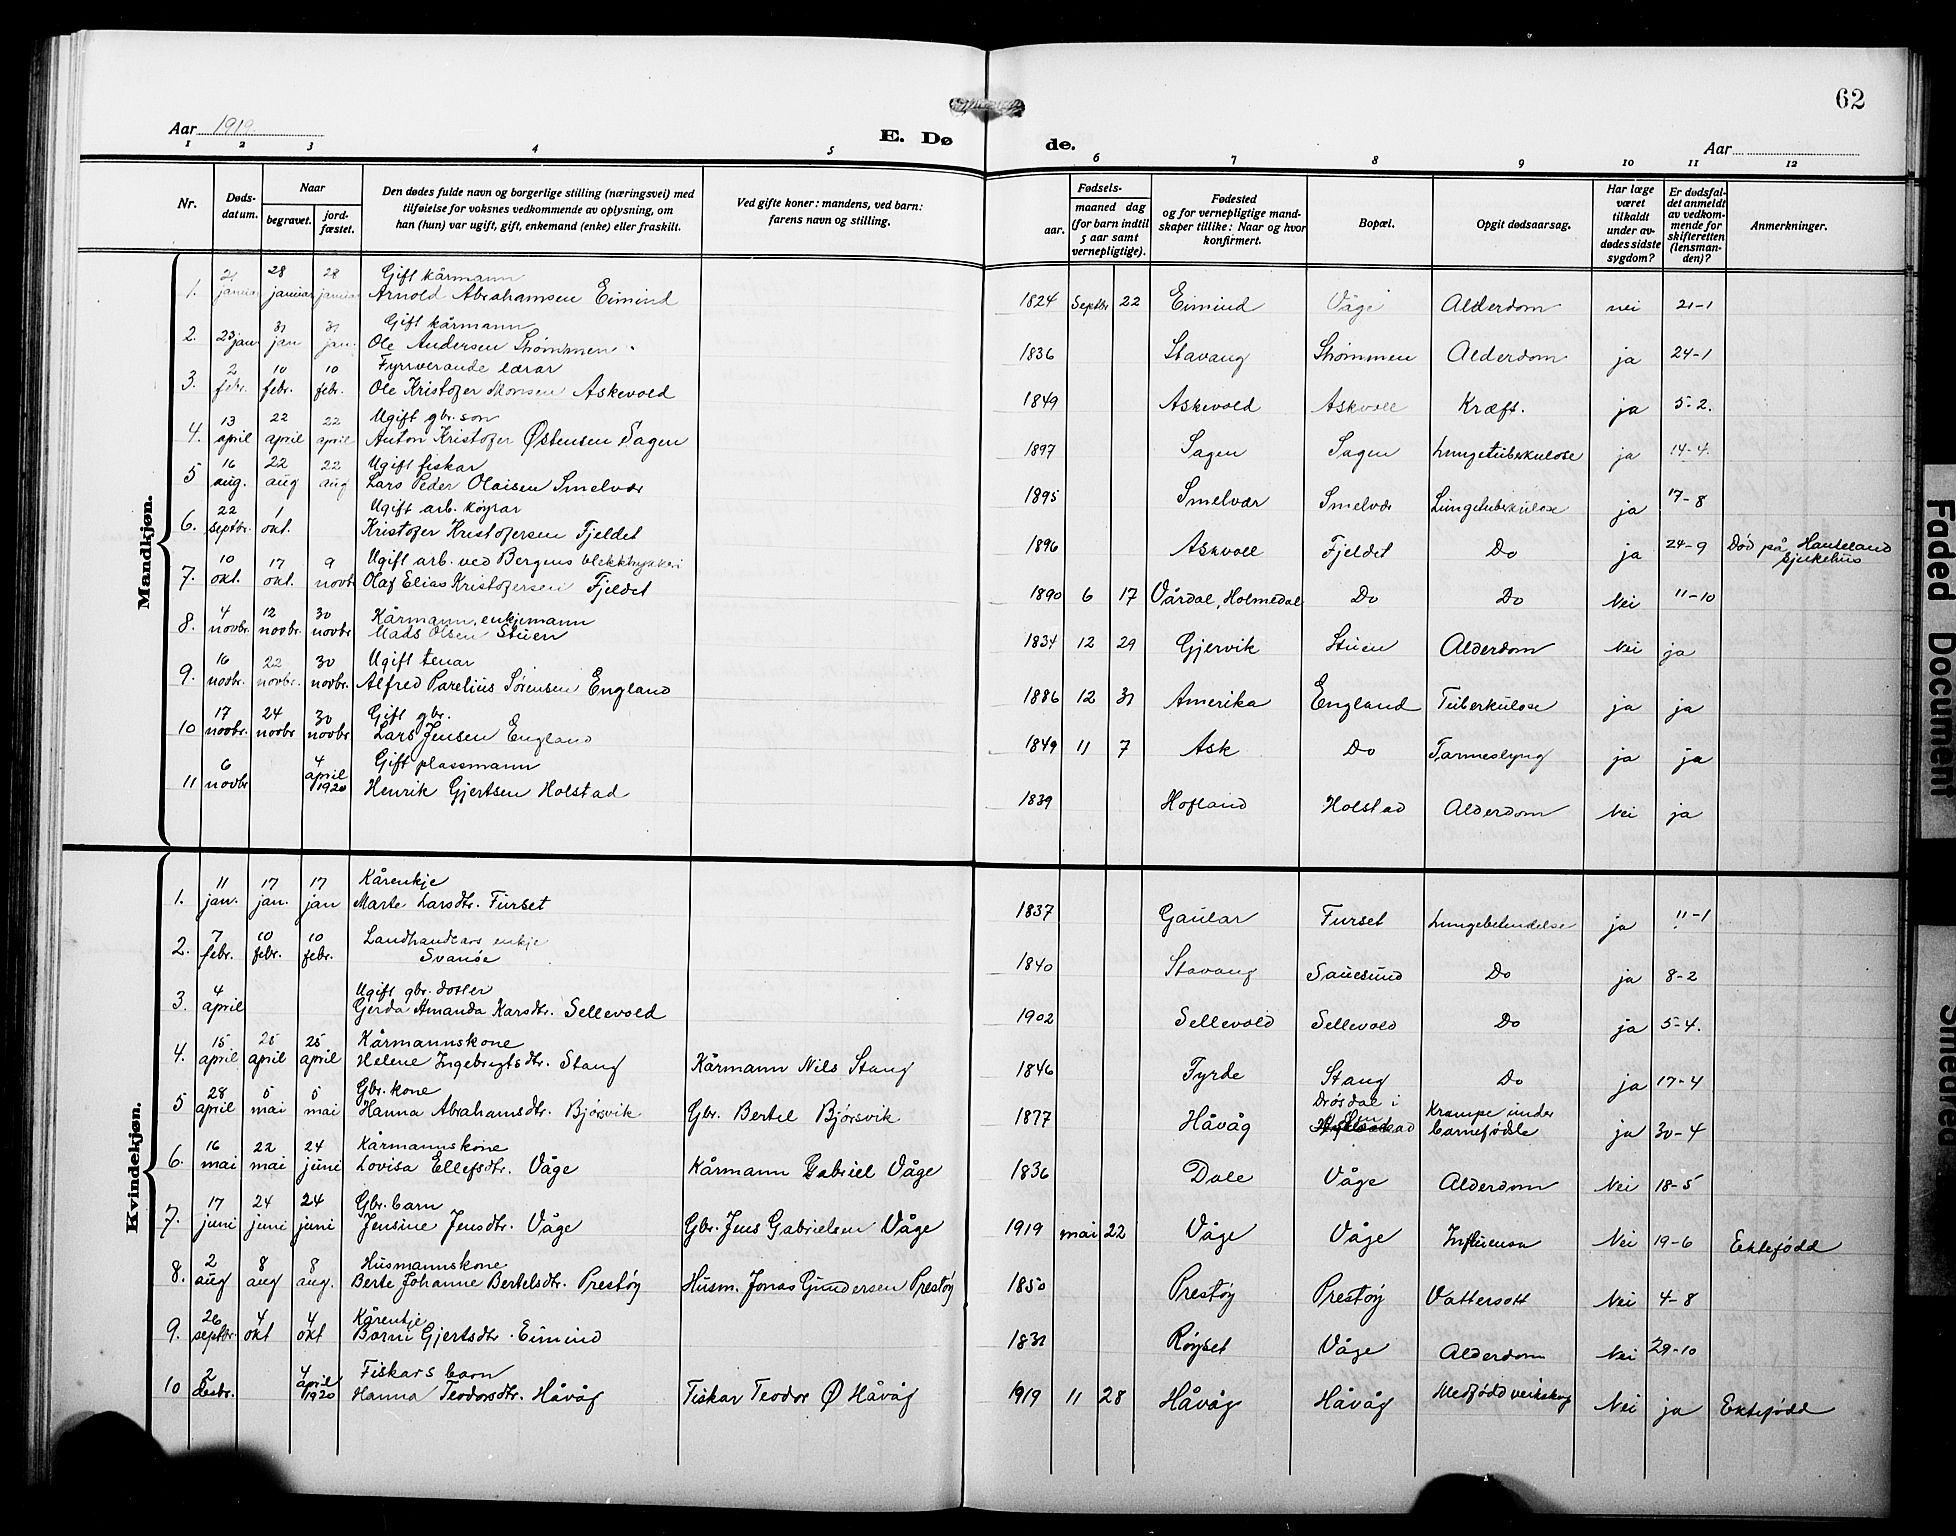 62
Aar 1919.
E. Dø
de.
Aar
1 2 3 4 5 6 7 8 9 10 11 12
Nr.
Døds-
datum.
Naar
begravet.
jord-
fæstet.
Den dødes fulde navn og borgerlige stilling (næringsvei) med
tilføielse for voksnes vedkommende av oplysning, om
han (hun) var ugift, gift, enkemand (enke) eller fraskilt.
Ved gifte koner: mandens, ved barn:
farens navn og stilling.
Fødsels-
aar.
maaned dag
(for barn indtil
5 aar samt
vernepligtige).
Fødested
og for vernepligtige mand-
skaper tillike: Naar og hvor
konfirmert.
Bopæl.
Opgit dødsaarsag.
Har læge
været
tilkaldt
under av-
dødes sidste
sygdom?
Er dødsfal-
det anmeldt
av vedkom-
mende for
skifteretten
(lensman-
den)?
Anmerkninger.
Mandkjøn.
21 28 28 Gift kårmann
1. januar januar januar Arnold Abrahamsen Eimind 1824 Septbr 22 Eimind Våge Alderdom nei 21-1
31 31 Gift kårmann
2. 23 jan jan jan. Ole Andersen Strømmen 1836 Stavang Strømmen Alderdom ja 24-1
2 10 10 Fyrrverande lærar
3. febr. febr. febr. Ole Kristofer Monsen Askevold 1849 Askevold Askvoll Kræft. ja 5-2.
13 22 22 Ugift gbr. son
4. april april april Anton Kristofer Østensen Sagen 1897 Sagen Sagen Lungetuberkulose ja 14-4.
16 22 22 Ugift fiskar
5 aug. aug aug Lars Peder Olaisen Smelvær 1895 Smelvær Smelvær Lungetuberkulose ja 17-8
22 1 Ugift arb. køyrar
6. septbr. okt. Kristofer Kristofersen Fjeldet 1896 Askvoll Fjeldet Do ja 24-9 Död på Hauteland
sjukehus
10 17 9 Ugift arb. ved Bergens
7. okt. okt. novbr Olaf Elias Kristofersen Fjeldet 1890 6 17 Vårdal, Holmedal Do Do Nei 11-10
4 12 30 Kårmann, enkjemann
8. novbr. novbr. novbr Mads Olsen Stuen 1834 12 29 Gjervik Stuen Alderdom Nei ja
16 22 30 Ugift tenar
9. novbr. novbr. novbr. Alfred Parelius Sørensen England 1886 12 31 Amerika England Tuberkulose ja ja
17 24 30 Gift gbr.
10 novbr. novbr novbr Lars Jensen England 1849 11 7 Ask Do Tarmeslyng ja ja
6 4 Gift plassmann
11 novbr april 1920 Henrik Gjertsen Holstad 1839 Hofland Holstad Alderdom Nei ja
Kvindekjøn.
11 17 17 Kårenkje
1. jan. jan. jan Marte Larsdtr. Furset 1837 Gaular Furset Lungebetendelse ja 11-1
7 10 10 Landhandlars enkje
2. febr. febr. febr. Svanöe 1840 Stavang Sauesund Do ja 8-2
4 Ugift gbr. dotler
3. april Gerda Amanda Karsdtr. Sellevold 1902 Sellevold Sellevold Do ja 5-4.
15 25 25 Kårmannskone
4. april april april Helene Ingebrigtsdtr. Stang Kårmann Nils Stang 1846 Tyrde Stang Do ja 17-4
28 5 5 Gbr. kone Drösdal i Krampe under
5 april mai mai Hanna Abrahamsdtr. Bjørsvik Gbr. Bertel Bjørsvik 1877 Håvåg barnefødsle ja 30-4
16 22 24 Kårmannskone
6. mai mai juni Lovisa Ellefsdtr. Våge Kårmann Gabriel Våge 1836 Dale Våge Alderdom Nei 18-5
17 24 24 Gbr. barn
7. juni juni juni Jensine Jensdtr. Våge Gbr. Jens Gabrielsen Våge 1919 mai 22 Våge Våge Influensa Nei 19-6 Ektefødd
2 8 8 Husmannskone
8. aug aug aug. Berte Johanne Bertelsdtr. Prestøy Husm. Jonas Gundersen Prestøy 1850 Prestøy Prestøy Vattersott Nei 4-8
26 4 4 Kårenkje
9. septbr. okt okt Barni Gjertsdtr. Eimind 1831 Røyset Våge Alderdom Nei 29-10
2 4 Fiskars barn
10 desbr. april 1920 Hanna Teodorsdtr. Håvåg Fiskar Teodor Ø Håvåg 1919 11 28 Håvåg Håvåg Medfødd veikskap Nei ja Ektefødd
Faded Document
Smeared